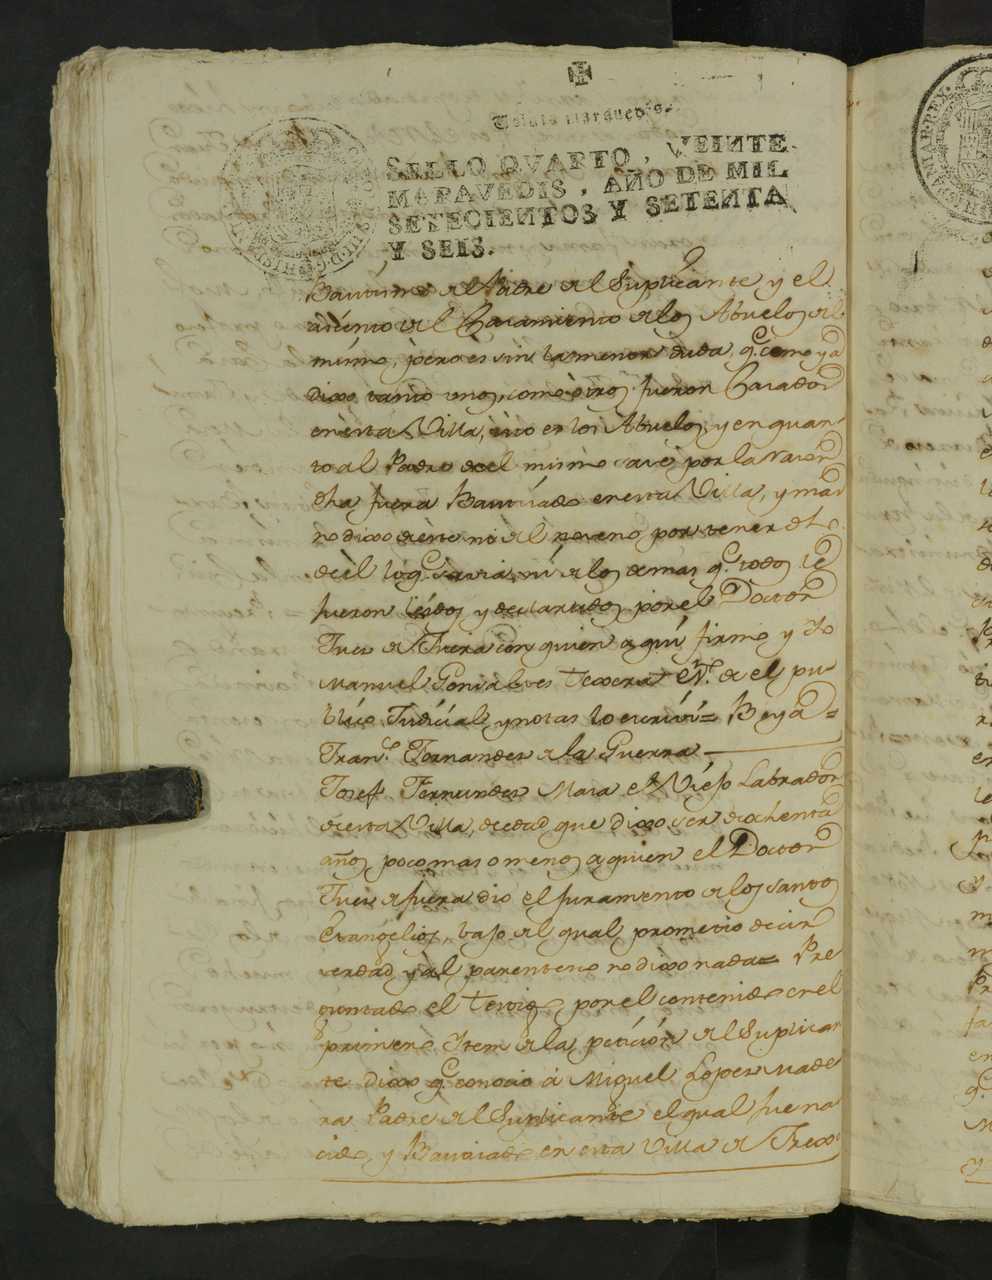 Veinte maravedis.
SELLO QVARTO, VEINTE
MARAVEDIS, AÑO DE MIL
SETECIENTOS Y SETENTA
Y SEIS.
Bautismo del Padre del Suplicante y el
asiento del Casamiento de los Abuelos del
mismo, pero es sin la menor duda, q.e como ya
dixo tanto unos, como otros fueron Casados
en esta Villa, esto es los Abuelos, y en quan-
to al Padre del mismo
dha fuera Bautizado en esta Villa, y mas
no dixo deste ni del noveno por tener dho
de el lo q.e savia, ni de los demas q.e todos le
fueron leidos y declarados por el Doctor
Juez de Fuera con quien aqui firmo y Yo
Manuel Gonsalves Texera de el pu-
blico Judicial, y notas lo escrivi = Beya =
Fran.co Fernandes de la Guerra
Josef Fernandes Mara el Viejo Labrador
de esta Villa, de edad que dixo ser de ochenta
años poco mas o menos a quien el Doctor
Juez de fuera dio el juramento de los santos
Evangelios, bajo del qual prometio decir
verdad, y al parentesco no dixo nada = Pre
guntado el testigo por el contenido en el
primero Item de la peticion del Suplican
te dixo q.e conocio á Miguel Lopes Made
ra Padre del Suplicante el qual fue na
cido, y Bautizado en esta Villa de